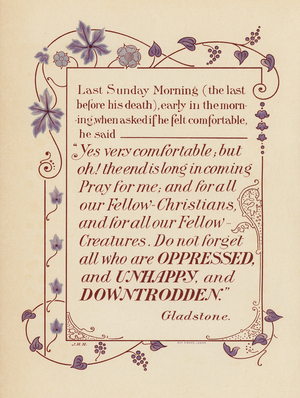 Last Sunday Morning (the last
before his death), early in the morn-
ing, when asked if he felt comfortable,
he said
"Yes very comfortable; but
oh! the end is long in coming
Pray for me; and for all
our Fellow-Christians,
and for all our Fellow-
Creatures. Do not forget
all who are OPPRESSED,
and UNHAPPY, and
DOWNTRODDEN."
Gladstone.
J.M.D.